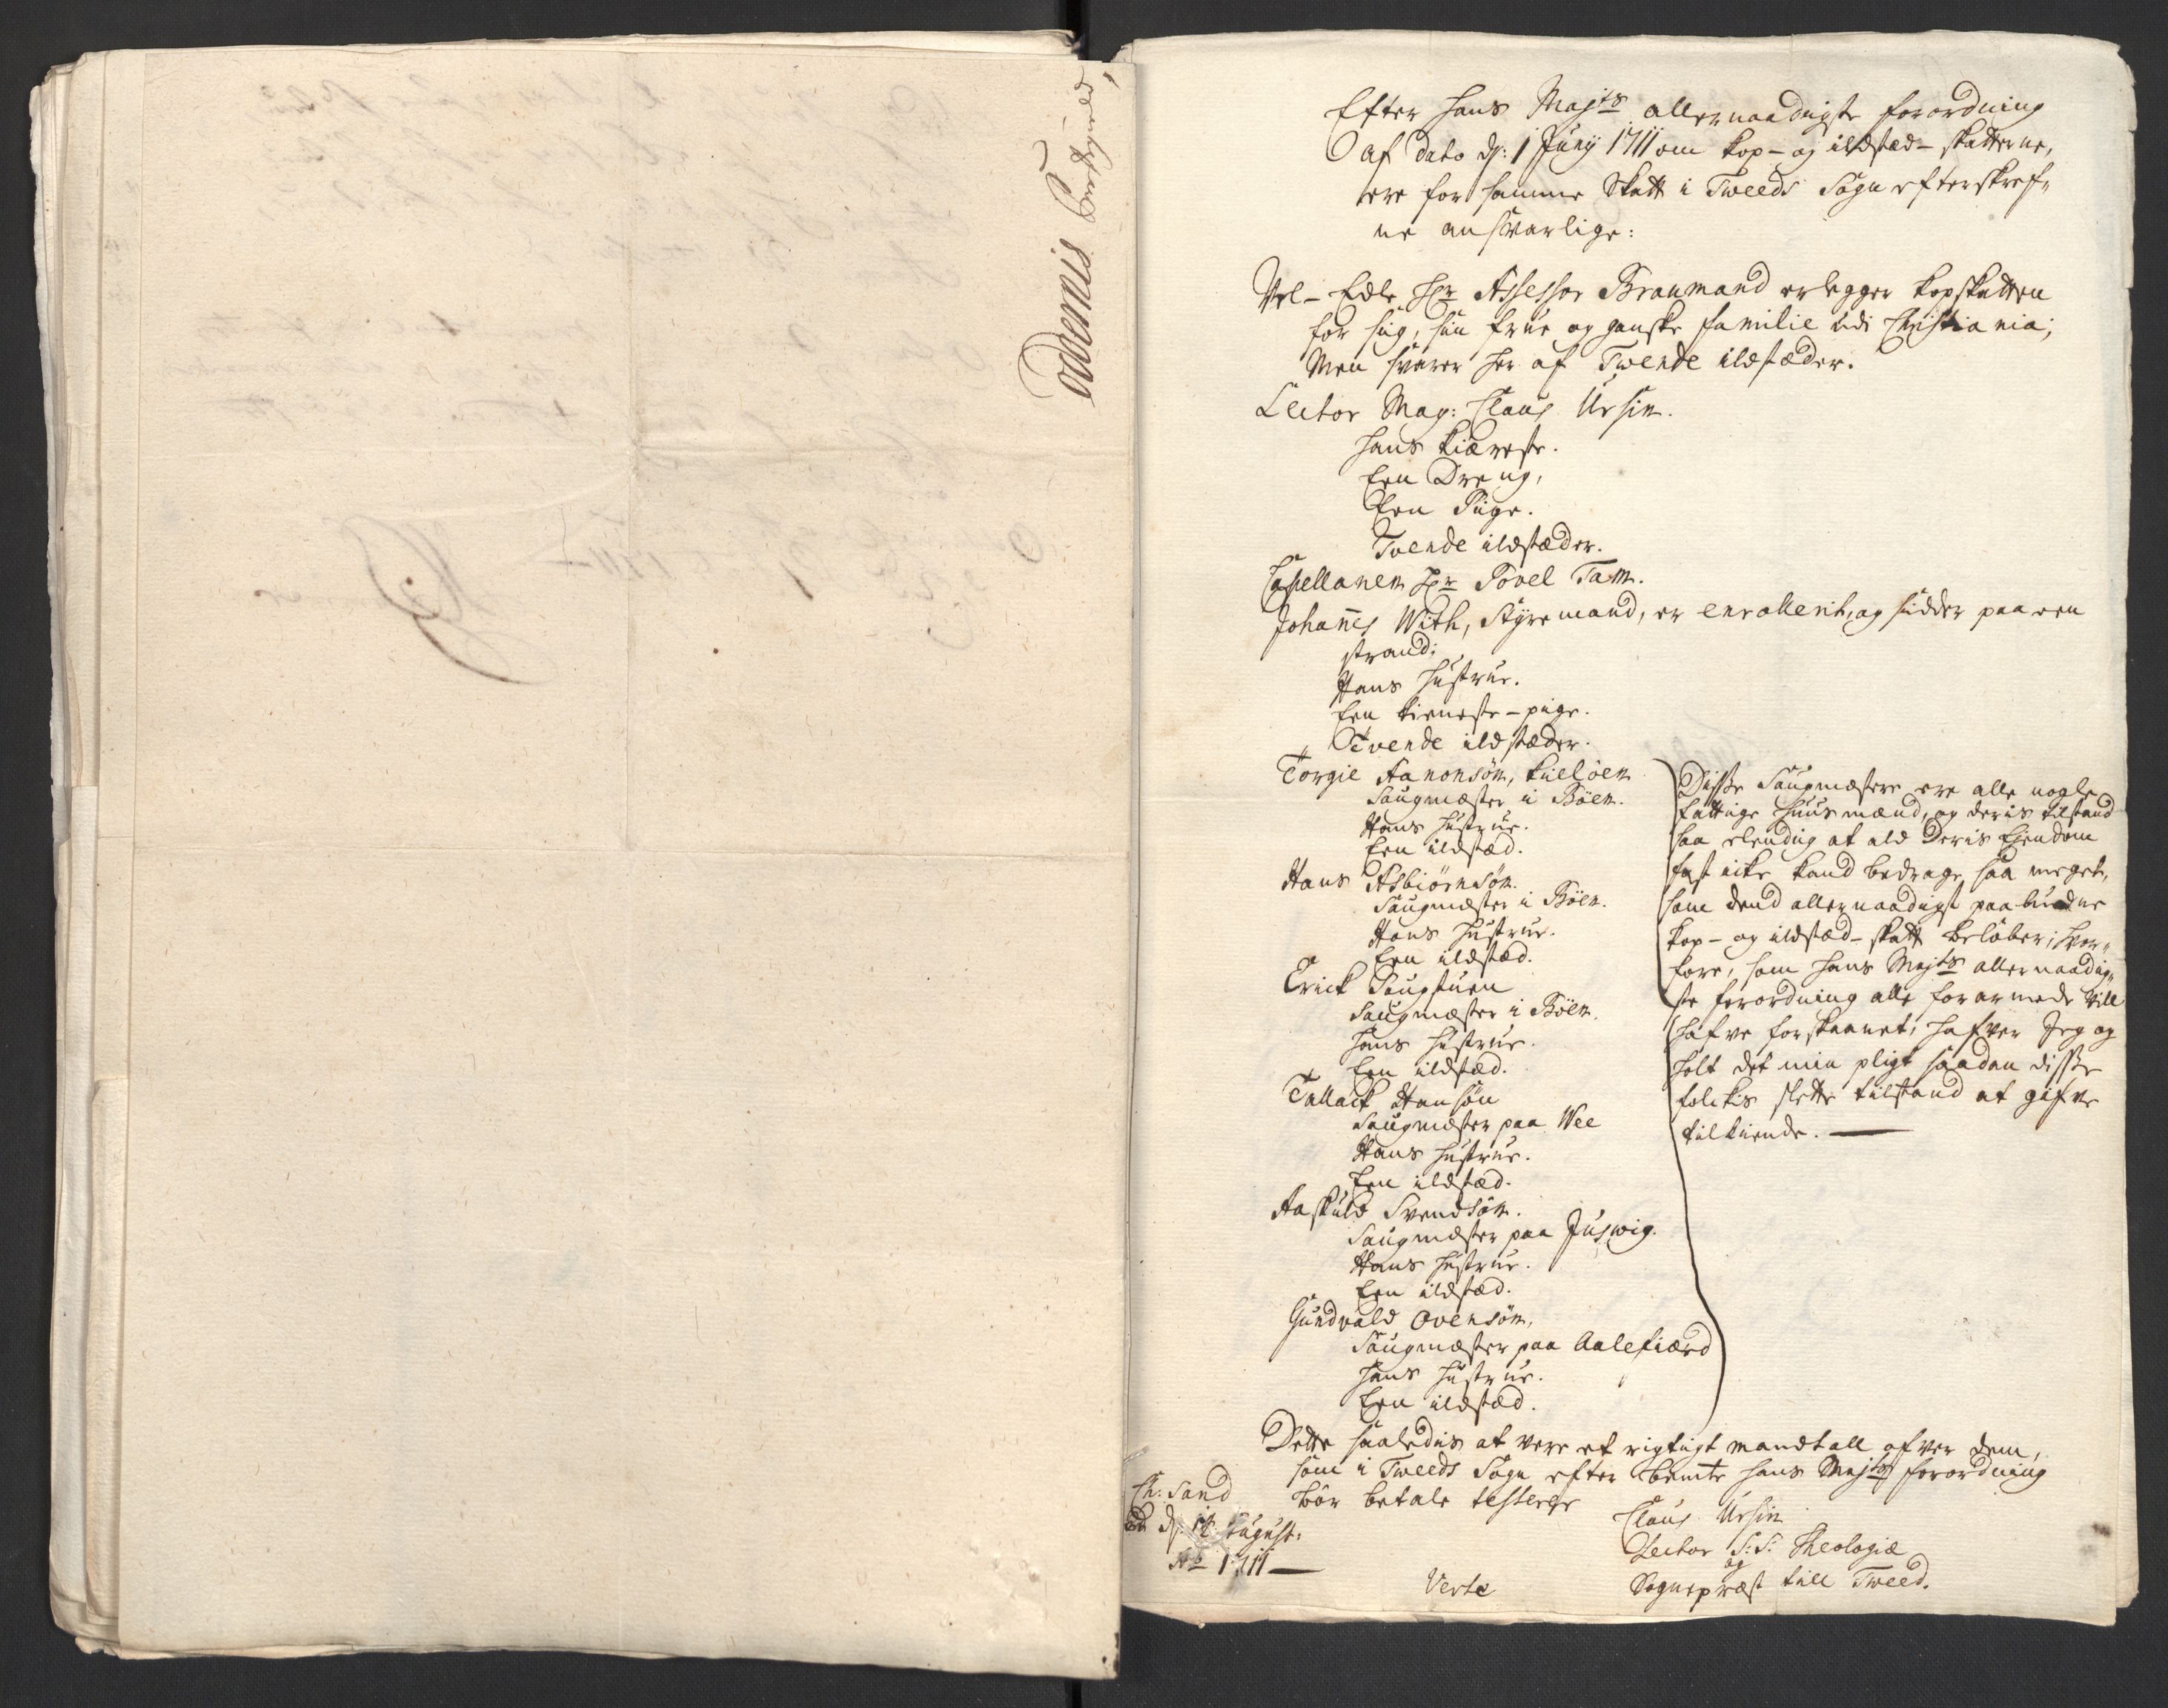 Oddernis Præstegield
Efter Hans Majts allernaadigste forordning
af dato d: 1 Junij 1711 om kop- og ildsted-skatterne,
ere for samme skatt i Tweeds Sogn efterskref-
ne ansvarlige:
Vel-Edle Hr Assessor Braumand erlegger kopskatten
for sig, sin frue og ganske familie udi Christiania;
Men svarer her af Twende ildstæder.
Lector Mag: Claus Ursin.
Hans kiæreste.
Een Dreng,
Een Pige.
Tvende ildstæder.
Capellanen Hr Povel Tam.
Johanes With, Styremand, er enrollerit, og sidder paa een
strand;
Hans Hustrue.
Een tieneste-pige.
Tvende ildstæder.
Torgie Aanonsøn,
Saugmæster i Böen.
Hans Hustrue.
Een ildstæd.
Hans Asbiörnsøn.
Saugmæster i Böen.
Hans Hustrue.
Een ildstæd.
Erick Saugstuen
Saugmæster i Böen.
Hans Hustrue.
Een ildstæd.
Tallack Hansön
Saugmæster paa Wee
Hans Hustrue.
Een ildstæd.
Aaskuld Svendsön.
Saugmæster paa Juswig.
Hans Hustrue.
Een ildstæd.
Gundvald Ovensøn,
Saugmæster paa Aalefiærd
Hans Hustrue.
Een ildstæd.
Disse Saugmæstere ere alle nogle
fattige Huusmænd, og deris tilstand
saa elendig at ald Deris Eyendom
fast icke kand bedrage saa meget,
som dend allernaadigst paabudne
kop- og ildstæd-skatt belöber; hvor-
fore, som Hans Majts allernaadig-
ste forordning alle forarmede vill
hafve forskaanet, hafver Jeg og
holt det min pligt saadan disse
folckis slette tilstand at gifve
tilkiende.
Dette saaledis at vere et rigtigt mandtall ofver dem,
som i Tweeds Sogn efter bemte Hans Majts forordning
bör betale testerer
Ch: Sand
d: August:
Ao 1711
Claus Ursin
Lector S: S: Theologiæ
og
Sognepræst till Tweed.
Verte